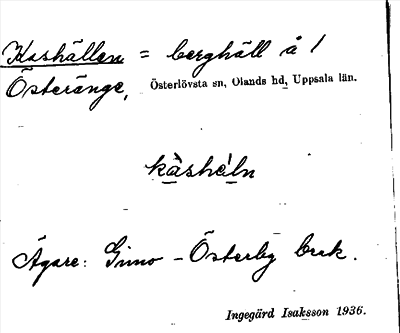 Kashällen = berghäll å /
Österänge, Österlövsta sn, Olands hd, Uppsala län.
kàshè'ln
Ägare: Gimo - Österby bruk.
Ingegärd Isaksson 1936.